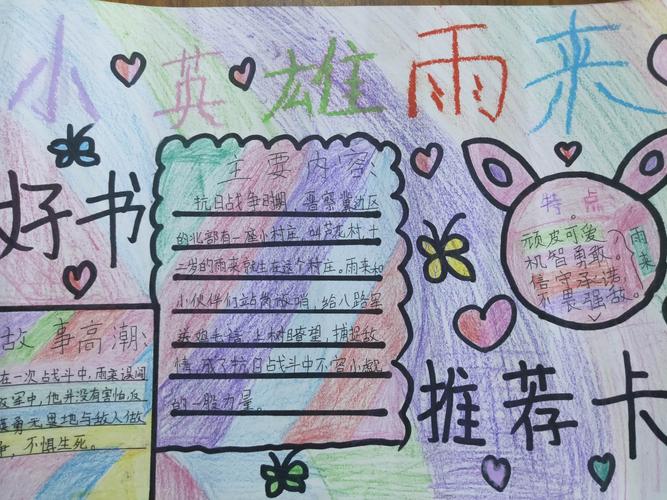 小英雄雨来
好书
推荐卡
主要内容:
抗日战争时期，晋察冀边区
的北部有一座小村庄，叫芦花村，十
二岁的雨来就生在这个村庄。雨来和
小伙伴们站岗放哨，给八路军
送鸡毛信，上树目瞭望，捕捉敌
情，成了抗日战斗中不容小觑
的一股力量。
故事高潮:
在一次占戈斗中，雨来误闯
敌军中，他并没有害怕，反
英勇无畏地与敌人做
争，不惧生死。
特点
顽皮可爱、
机智勇敢、
信守承诺
不畏强敌。
雨来